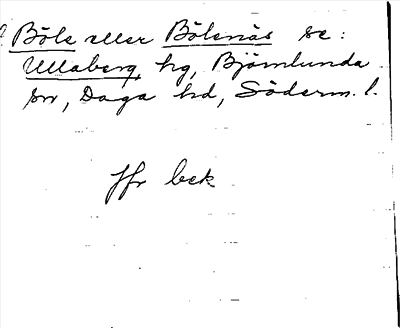 Böle eller Bölsnäs se:
Ullaberg, hg, Björnlunda
sn, Daga hd, Söderm. l.
Jfr beck